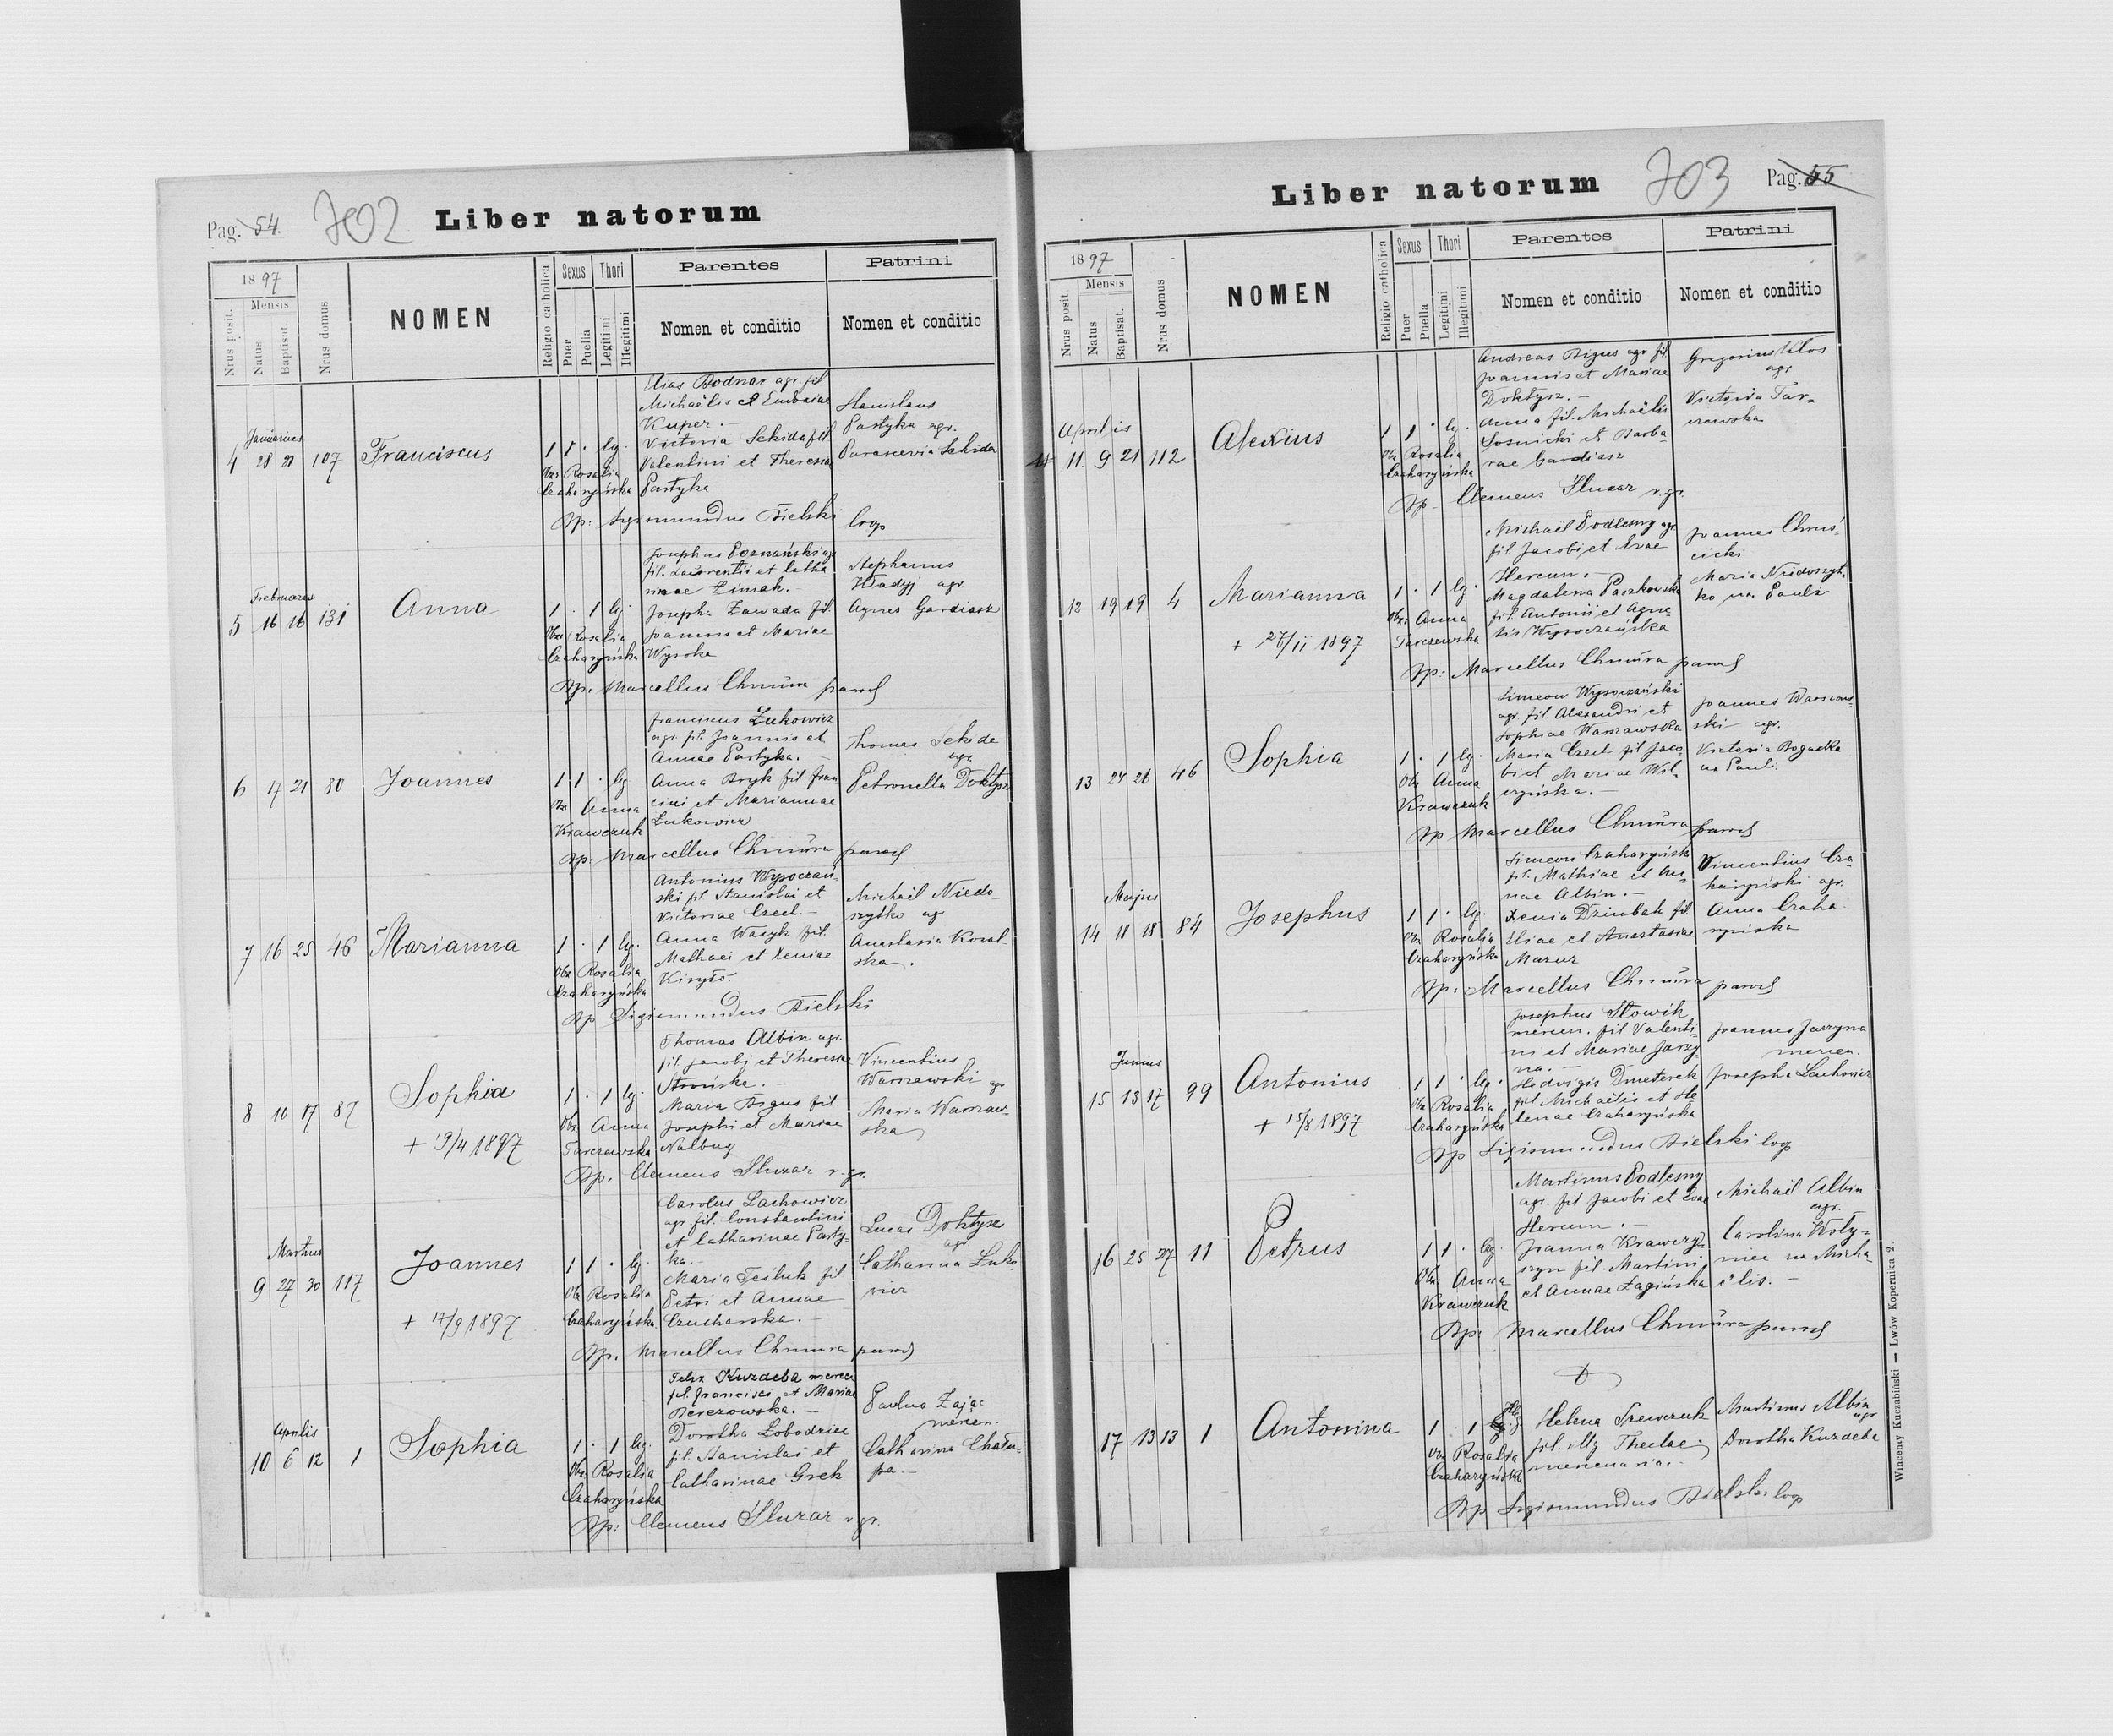 Pag. 54.
702
Liber natorum
1897
Mensis
Nrus posit.
Natus
Baptisat.
Nrus domus
NOMEN
Religio catholica
Sexus
Puer
Puella
Thori
Legitimi
Illegitimi
Parentes
Nomen et conditio
Patrini
Nomen et conditio
Januarius
4 28 31 107 Franciscus 1 1 · lg.
Obs Rosalia
Czaharyńska
Elias Bodnar agr. fil
Michaëlis et Eudoxiae
Kuper. —
Victoria Sekida fil
Valentini et Theresiae
Partyka
Stanislaus
Partyka agr.
Parascevia Sekida
Bp. Sigismundus Bielski coop
Februarius
5 16 16 131 Anna 1 · 1 lg.
Obs Rosalia
Czaharyńska
Josephus Poznański agr
fil. Laurentii et Catha
rinae Zimak. —
Josepha Zawada fil.
Joannis et Mariae
Wysoka
Stephanus
Hladyj agr.
Agnes Gardiasz
Bp. Marcellus Chmura paroch
6 17 21 80 Joannes 1 1 · lg
Obs Anna
Krawczuk
Franciscus Łukowicz
agr. fil. Joannis et
Annae Partyka. —
Anna Bryk fil Fran
cisci et Mariannae
Łukowicz
Thomas Sekida
agr.
Petronella Doktysz
Bp. Marcellus Chmura paroch
7 16 25 46 Marianna 1 · 1 lg.
Obs Rosalia
Czaharyńska
Antonius Wysoczań-
ski fil Stanislai et
Victoriae Czech. —
Anna Wasyk fil
Mathaei et Xeniae
Kiryło
Michaël Niedo-
szytko agr
Anastasia Kowal-
ska.
Bp Sigismundus Bielski
8 10 17 87 Sophia 1 · 1 lg
+ 19/4 1897
Obs Anna
Tarczewska
Thomas Albin agr.
fil. Jacobi et Theresiae
Strońska. —
Maria Bigus fil
Josephi et Mariae
Nalbug
Vincentius
Warszawski agr
Maria Warszaw-
ska
Bp. Clemens Słuzar r. gr.
Martius
9 27 30 117 Joannes 1 1 · lg.
+ 17/9 1897
Obs Rosalia
Czaharyńska
Carolus Lachowicz
agr. fil. Constantini
et Catharinae Party-
ka. —
Maria Tesluk fil
Petri et Annae
Czucharska. —
Lucas Doktysz
agr.
Catharina Łuko
wicz
Bp. Marcellus Chmura paroch
Aprilis
10 6 12 1 Sophia 1 · 1 lg.
Obs Rosalia
Czaharyńska
Felix Kurdeba mercen
fil. Francisci et Mariae
Berezowska. —
Dorothea Łobodziec
fil. Stanislai et
Catharinae Grek
Paulus Zając
mercen.
Catharina Chału-
pa. —
Bp: Clemens Słuzar r. gr.
Liber natorum
703
Pag. 55
1897
Mensis
Nrus posit
Natus
Baptisat.
Nrus domus
NOMEN
Religio catholica
Sexus
Puer
Puella
Thori
Legitimi
Illegitimi
Parentes
Nomen et conditio
Patrini
Nomen et conditio
Aprilis
11. 9 21 112 Alexius 1 1 · lg.
Obs Rosalia
Czaharyńska
Andreas Bigus agr fil
Joannis et Mariae
Doktysz. —
Anna fil. Michaëlis
Sosnicki et Barba-
rae Gardiasz
Gregorius Kłos
agr
Victoria Tar-
czewska
Bp. Clemens Słuzar r. gr.
12 19 19 4 Marianna 1 · 1 lg.
+ 27/11 1897
Obs Anna
Tarczewska
Michaël Podlesny agr
fil. Jacobi et Evae
Hercun. —
Magdalena Paszkowska
fil. Antonii et Agne-
tis Wysoczańska
Joannes Chruś-
cicki
Maria Niedoszyt-
ko ux Pauli
Bp: Marcellus Chmura paroch
13 24 26 46 Sophia 1 · 1 lg.
Obs Anna
Krawczuk
Simeon Wysoczański
agr. fil. Alexandri et
Sophiae Warszawska
Maria Czech fil Jaco
bi et Mariae Wil-
czyńska. —
Joannes Warszaw-
ski agr.
Victoria Bogucka
ux Pauli.
Bp Marcellus Chmura paroch
Majus
14 18 18 84 Josephus 1 1 · lg.
Obs Rosalia
Czaharyńska
Simeon Czaharyński
fil. Mathiae et An-
nae Albin. —
Xenia Dziubak fil.
Eliae et Anastasiae
Mazur
Vincentius Cza-
haryński agr.
Anna Czaha-
ryńska
Bp: Marcellus Chmura paroch
Junius
15 13 17 99 Antonius 1 1 · lg.
+ 15/8 1897
Obs Rosalia
Czaharyńska
Josephus Słowik
mercen. fil Valenti-
ni et Mariae Jarzy-
na. —
Hedvigis Dmeterek
fil Michaëlis et He
lenae Czaharyńska
Joannes Jarzyna
mercen.
Josepha Lachowicz
Bp Sigismundus Bielski coop
16 25 27 11 Petrus 1 1 · lg.
Obs. Anna
Krawczuk
Martinus Podlesny
agr. fil Jacobi et Evae
Hercun. —
Joanna Krawczy-
szyn fil. Martini
et Annae Łagińska
Michaël Albin
agr.
Carolina Woły-
niec ux Micha-
ëlis. —
Bp: Marcellus Chmura paroch
17 13 13 1 Antonina 1 · 1 illg
Obs Rosalia
Czaharyńska
Helena Szewczuk
fil. illg Theclae
mercenaria. —
Martinus Albin
agr
Dorothea Kurdeba
Bp Sigismundus Bielski coop
Wincenty Kuczabiński — Lwów Kopernika 2.